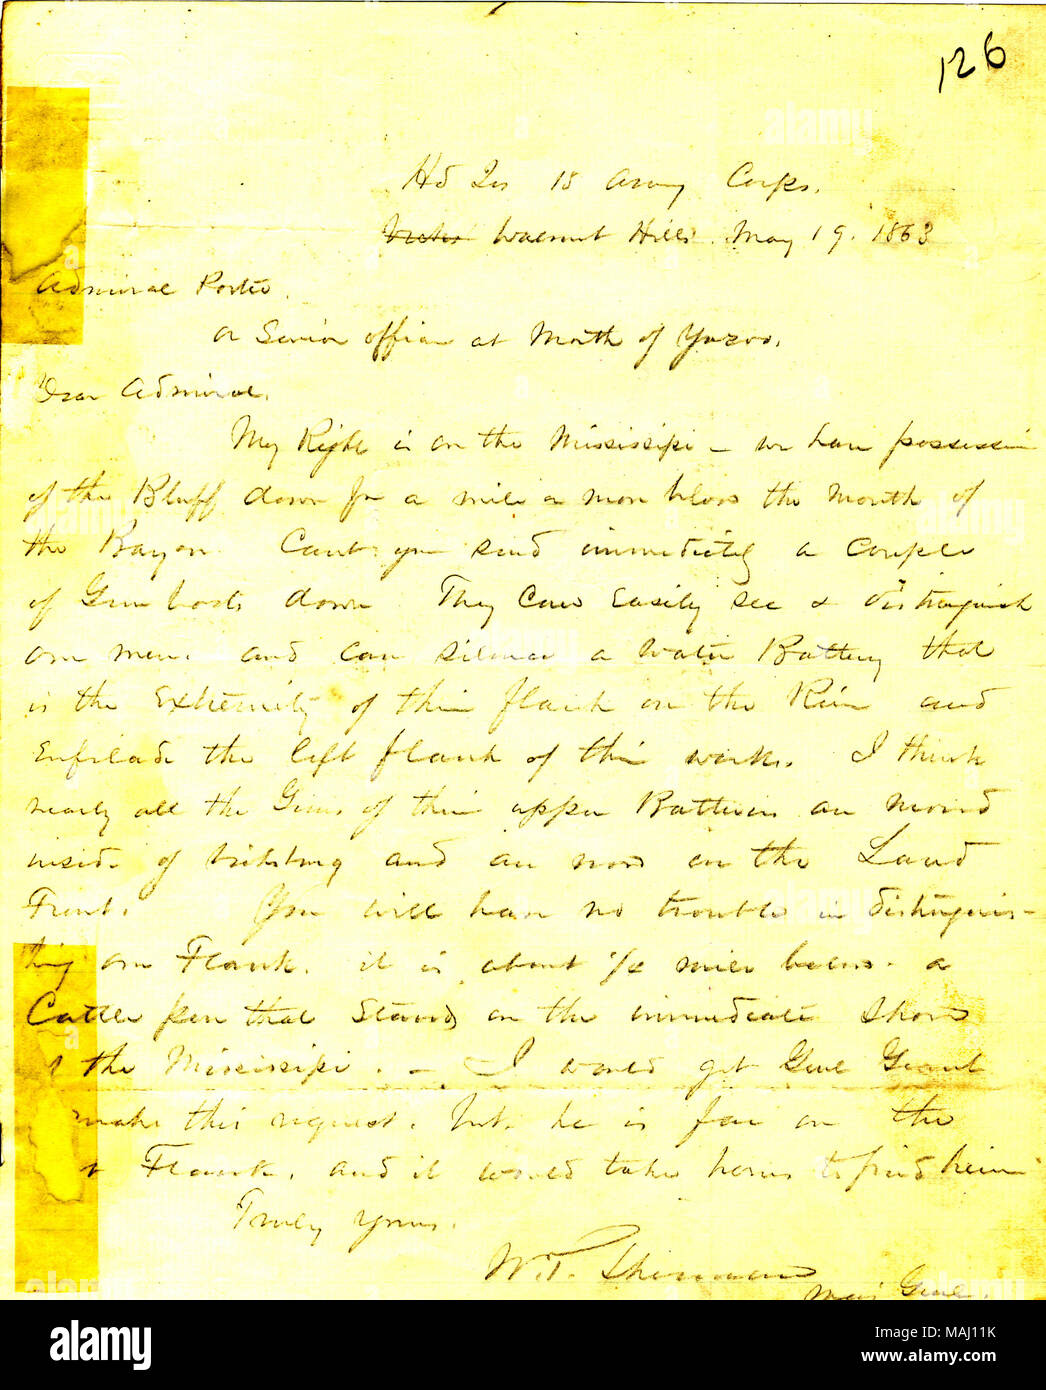 126
Hd Qrs 15 Army Corps.
Walnut Hills. May 19. 1863
Admiral Porter.
or Senior officer at Mouth of Yazoo.
Dear Admiral,
My Right is on the Mississipi - we have possession
of the Bluff down for a mile or more below the mouth of
the Bayou. Cant you send immediately a couple
of Gun boats down They can Easily see & distinguish
our men. and can silence a Water Battery that
is the Extremity of their flank on the River and
Enfilade the left flank of their works. I think
nearly all the Guns of their upper Batteries are moved
inside of Vicksburg and are now on the Land
Front. You will have no trouble in distinguis-
hing our Flank. it is about 1/2 mile below a
Cattle pen that Stands on the immediate Shore
the Mississipi. - I would get Genl Grant
make this request. but he is far on the
Flank, and it would take hours to find him
Truly Yours.
W.T. Sherman
Maj Genl.
alamy
Image ID: MAJ11K
www.alamy.com